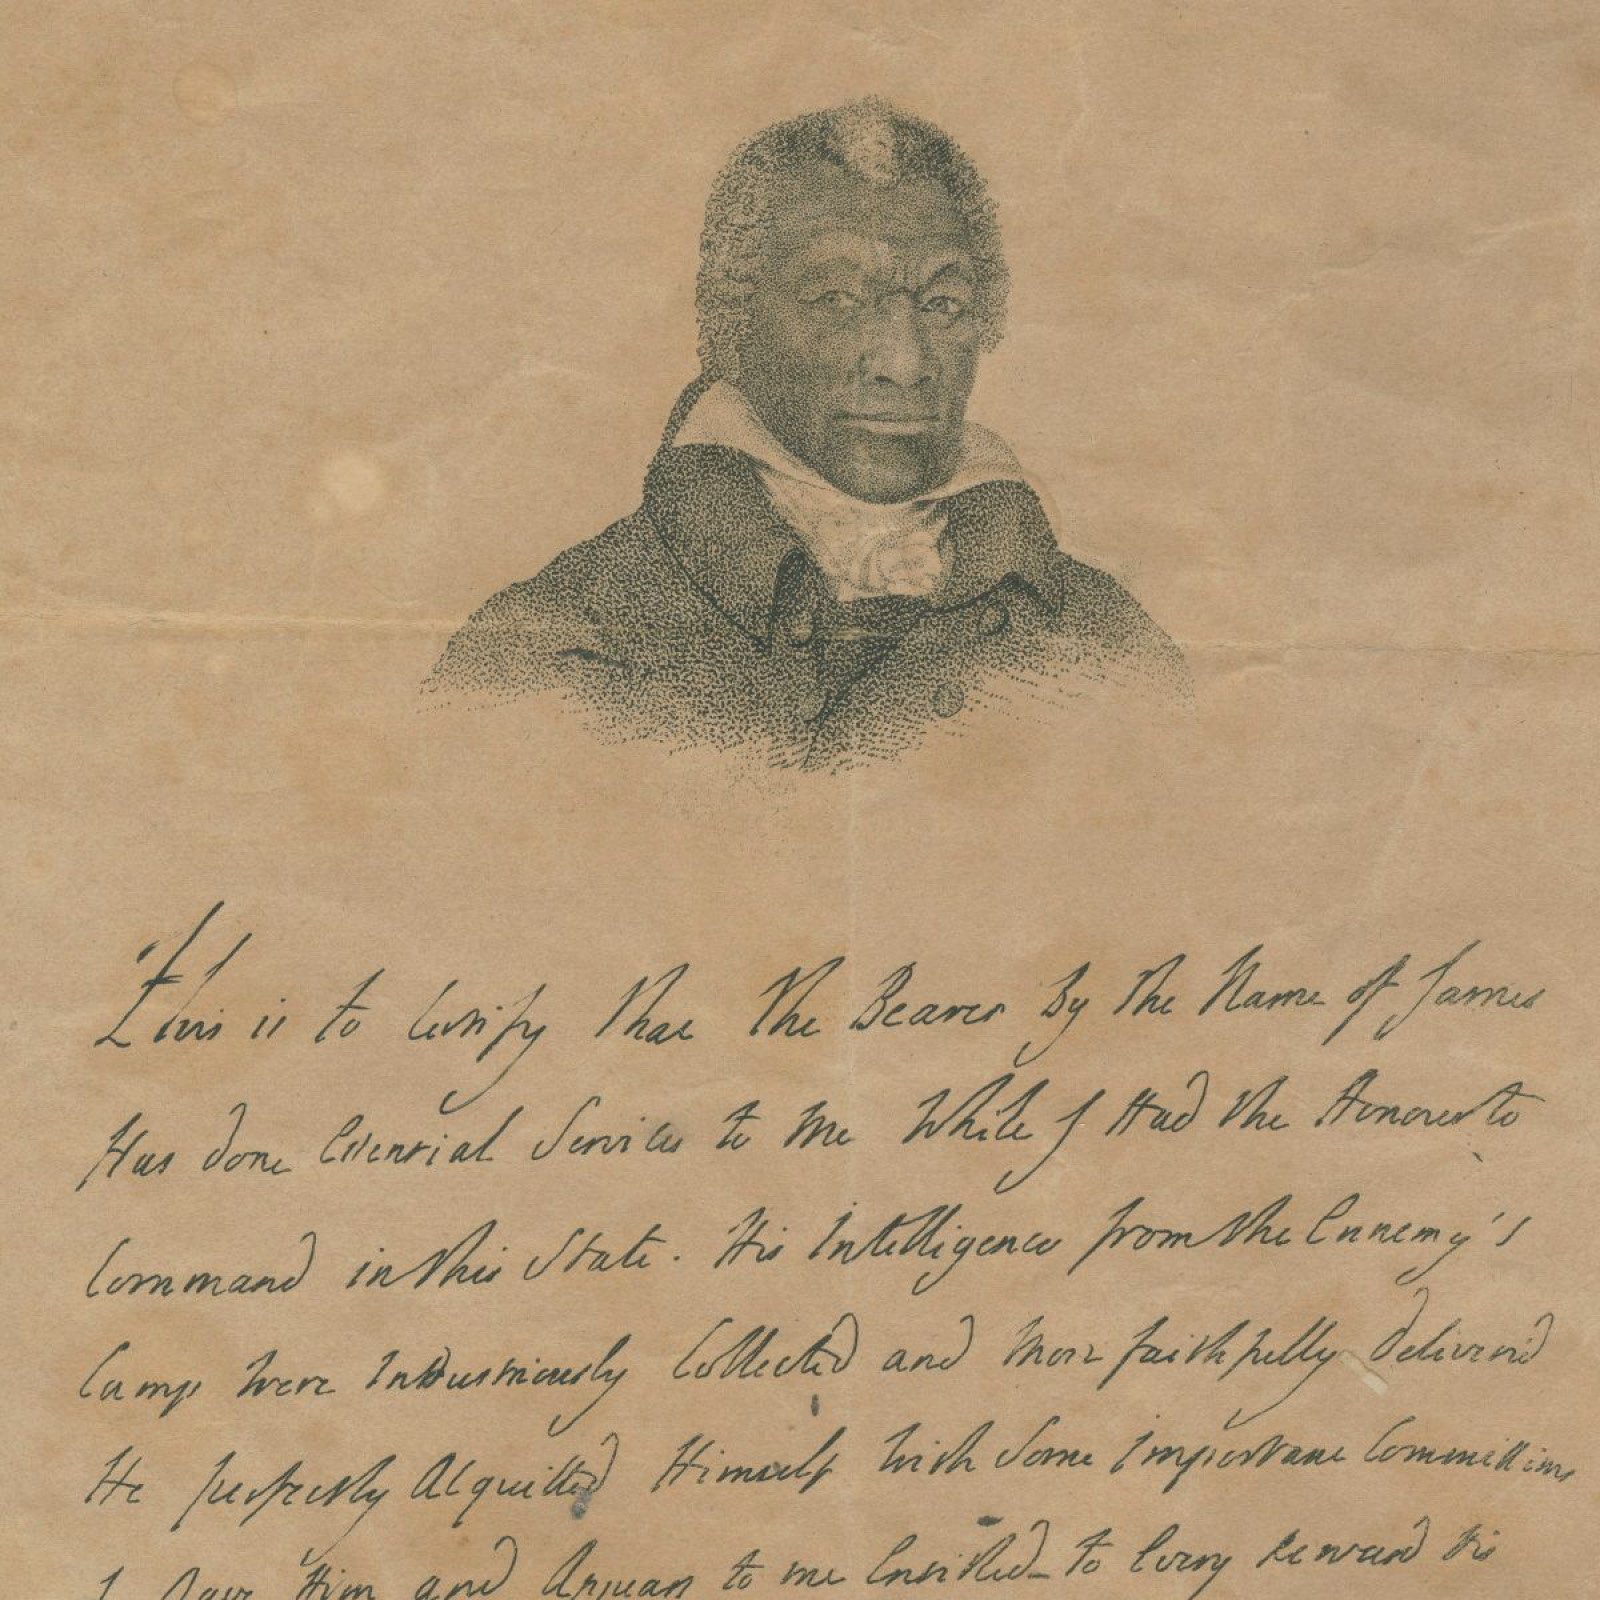 This is to Certify that the Bearer By the Name of James
Has done Essential Services to me While I Had the Honour to
Command in this State. His Intelligences from the Ennemy's
Camp were Industriously Collected and More faithfully deliver'd
He perfectly Acquitted Himself with Some Important Commissions
I Gave Him and Appears to me Entitled to Every Reward his